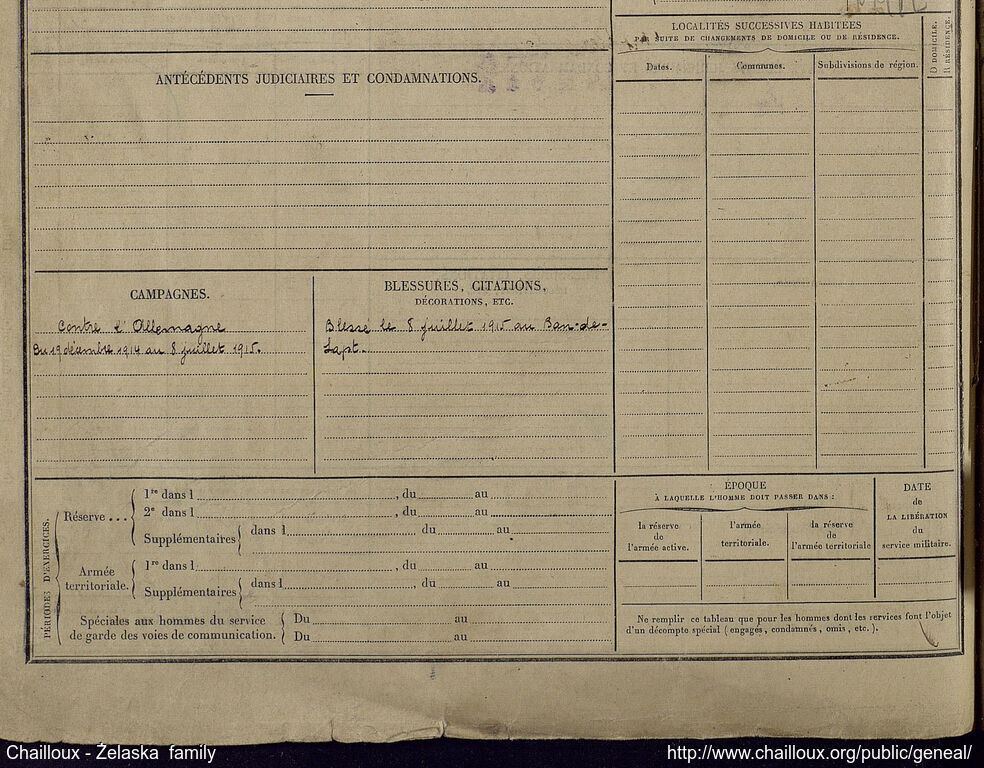 ANTÉCÉDENTS JUDICIAIRES ET CONDAMNATIONS.
CAMPAGNES.
Contre l'Allemagne
Du 19 décembre 1914 au 8 juillet 1915.
BLESSURES, CITATIONS,
DÉCORATIONS, ETC.
Blessé le 8 juillet 1915 au Ban-de-
Sapt.
LOCALITÉS SUCCESSIVES HABITÉES
PAR SUITE DE CHANGEMENTS DE DOMICILE OU DE RÉSIDENCE.
Dates. Communes. Subdivisions de région.
D DOMICILE,
R RÉSIDENCE.
PÉRIODES D'EXERCICES.
Réserve ...
1re dans l , du au
2e dans l , du au
Supplémentaires dans l du au
Armée
territoriale.
1re dans l , du au
Supplémentaires dans l , du au
Spéciales aux hommes du service
de garde des voies de communication.
Du au
Du au
ÉPOQUE
À LAQUELLE L'HOMME DOIT PASSER DANS :
la réserve
de
l'armée active.
l'armée
territoriale.
la réserve
de
l'armée territoriale
DATE
de
LA LIBÉRATION
du
service militaire.
Ne remplir ce tableau que pour les hommes dont les services font l'objet
d'un décompte spécial (engagés, condamnés, omis, etc.).
Chailloux - Želaska family
http://www.chailloux.org/public/geneal/